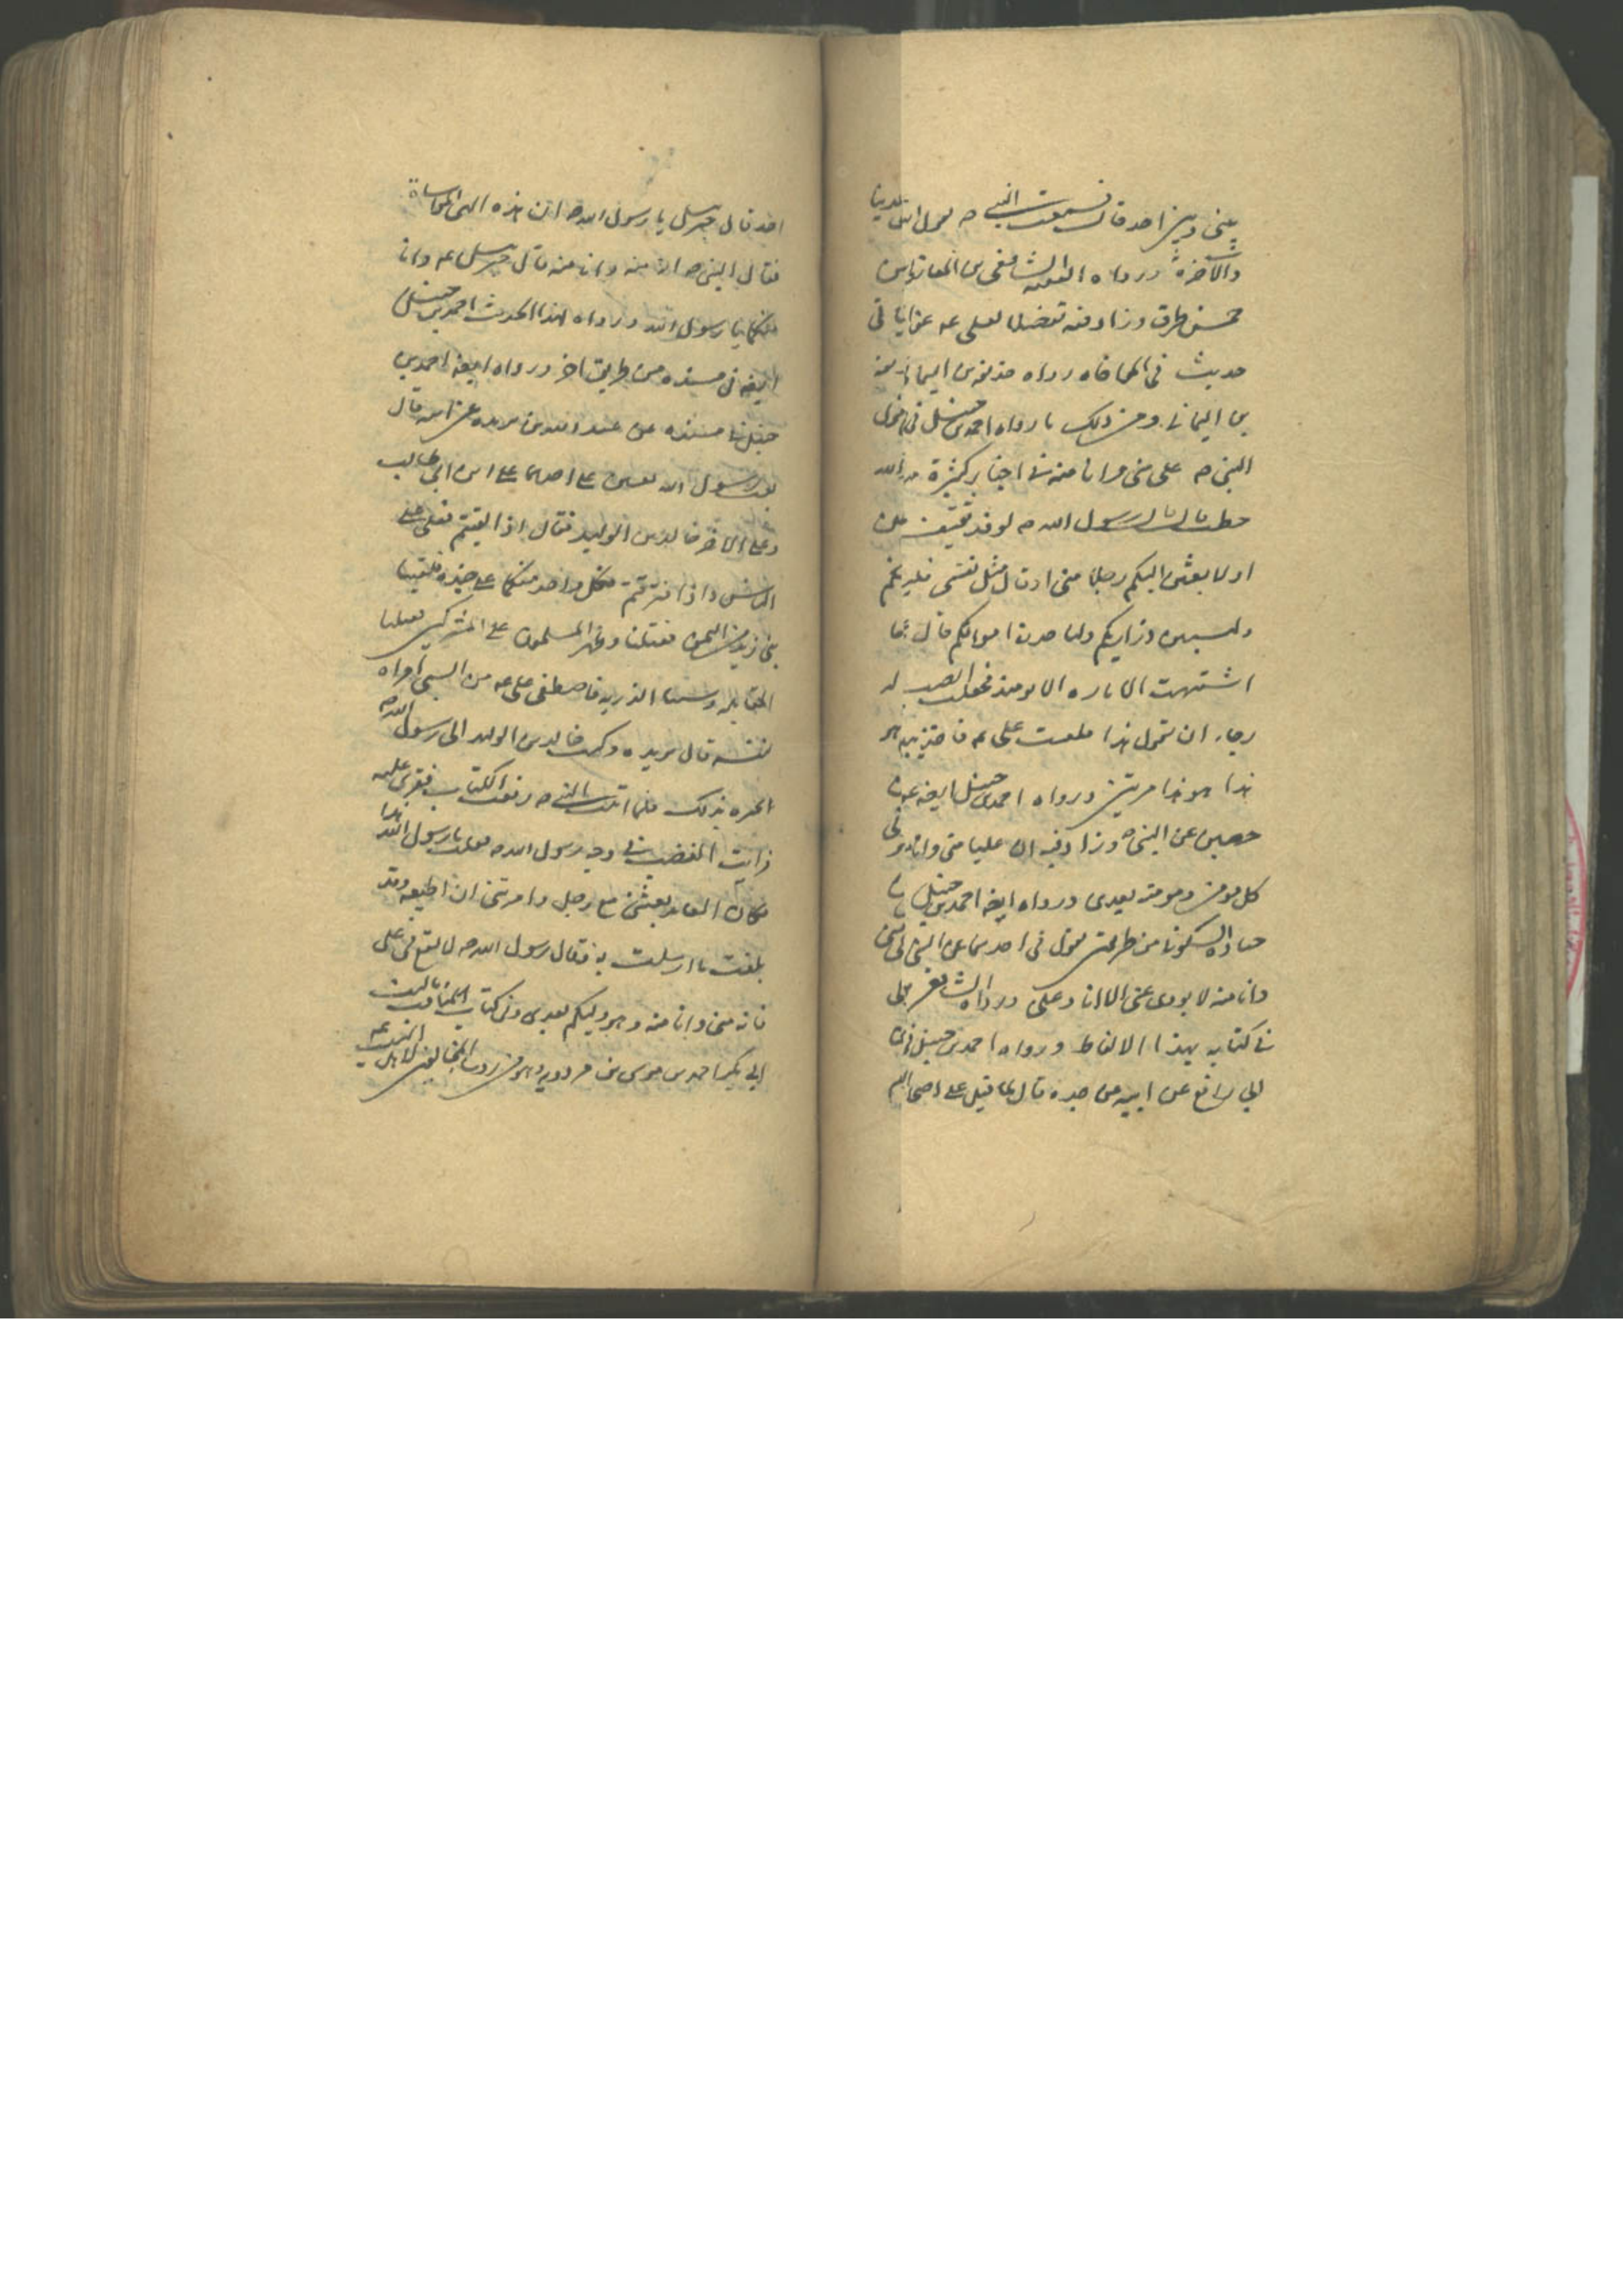 بيني وبين احد قال فسمعت النبي ص يقول انت في الدنيا
والآخرة ورواه الفقيه الشافعي ابن المغازلي من
خمس طرق وزاد فيه تفضيلا لعلي عم
حديث في المواخاة رواه حذيفة بن اليمان
بن اليماني ومن ذلك ما رواه احمد بن حنبل في قول
النبي ص علي مني وانا منه في اخبار كثيرة
حنطب قال قال رسول الله ص لوفد ثقيف
او لابعثن اليكم رجلا مني او قال مثل نفسي
وليسبين ذراريكم ولياخذن اموالكم قال
اشتهيت الامارة الا يومئذ فجعلت انصب له
رجاء ان يقول هذا فالتفت علي عم فاخذ بيده
هذا هو هذا مرتين ورواه احمد بن حنبل ايضا عن
حصين عن النبي ص وزاد فيه ان عليا مني وانا
كل مؤمن ومؤمنة بعدي ورواه ايضا احمد بن حنبل
جنادة السكوني من طريقين يقول في احديهما عن النبي
وانا منه لا يودي عني الا انا وعلي ورواه الشافعي
في كتابه بهذا الالفاظ ورواه احمد بن حنبل
ابي رافع عن ابيه عن جده قال لما قتل علي اصحاب
احد قال جبرئيل يا رسول الله ص ان هذه الهي المواساة
فقال النبي ص انه مني وانا منه قال جبرئيل عم وانا
منكما يا رسول الله ورواه هذا الحديث احمد بن حنبل
ايضا في مسنده من طريق اخر ورواه ايضا احمد بن
حنبل في مسنده عن عبد الله بن بريده عن ابيه قال
بعث رسول الله بعثين على احدهما علي ابن ابي طالب
وعلى الاخر خالد بن الوليد فقال اذا التقيتم فعلي على
الناس واذا افترقتم فكل واحد منكما على جنده فلقينا
بني زبيد من اليمن فقتلنا وظهر المسلمون على المشركين فقتلنا
المقاتلة وسبينا الذرية فاصطفى علي عم من السبي امراة
لنفسه قال بريده وكتب خالد بن الوليد الى رسول الله ص
اخبره بذلك فلما اتيت النبي ص رفعت الكتاب فقري عليه
فرايت الغضب في وجه رسول الله ص فقلت يا رسول الله هذا
مكان العائذ بعثتني مع رجل وامرتني ان اطيعه وقد
بلغت ما ارسلت به فقال رسول الله ص لا تقع في علي
فانه مني وانا منه وهو وليكم بعدي وفي كتاب المناقب تاليف
ابي بكر احمد بن موسى بن مردويه وهو من رؤساء المخالفين لاهل